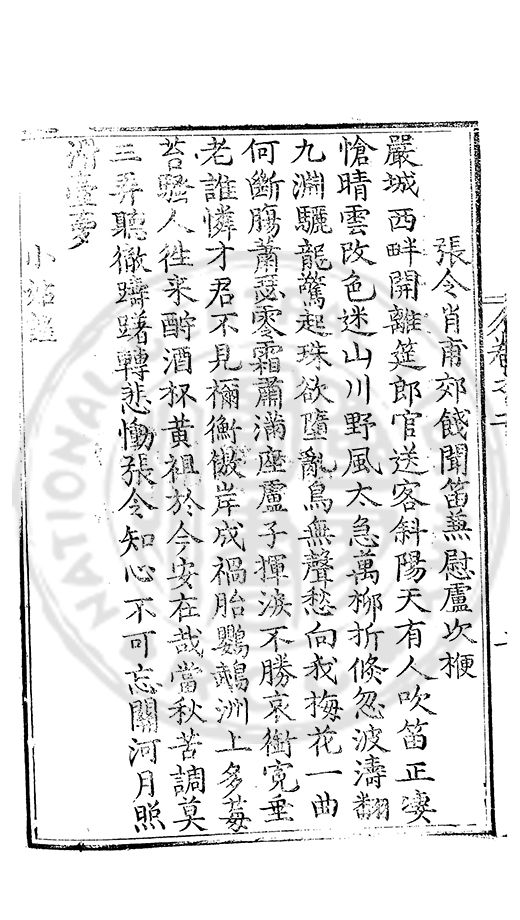 張令肖甫郊餞聞笛兼慰盧次楩
嚴城西畔開離筵郎官送客斜陽天有人吹笛正淒
愴晴雲改色迷山川野風太急萬柳折倏忽波濤翻
九淵驪龍驚起珠欲墮亂鳥無聲愁向我梅花一曲
何斷膓蕭瑟零霜肅滿座盧子揮淚不勝哀銜寃垂
老誰憐才君不見禰衡傲岸成禍胎鸚鵡洲上多莓
苔騷人徃來酹酒杯黃祖於今安在哉當秋苦調莫
三弄聽徹躊躇轉悲慟張令知心不可忘關河月照
滑臺夢
NATIONAL